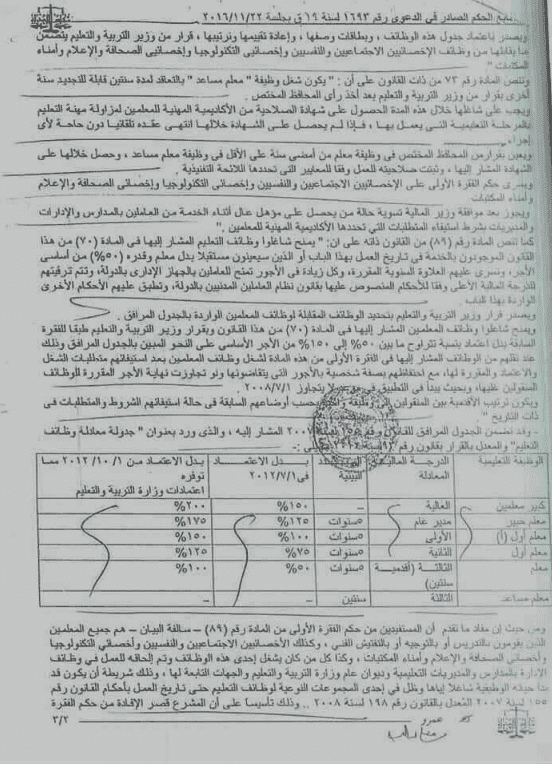 تابع الحكم الصادر فى الدعوى رقم ١٦٩٣ لسنة ١٩ ق بجلسة ٢٠١٦/١١/٢٢
ويصدر باعتماد جدول هذه الوظائف ، وبطاقات وصفها ، وإعادة تقييمها وترتيبها ، قرار من وزير التربية والتعليم يتضمن
ما يقابلها من وظائف الإخصائيين الاجتماعيين والنفسيين وإخصائيى التكنولوجيا وإخصائيى الصحافة والإعلام وأمناء
المكتبات "
وتنص المادة رقم ٧٣ من ذات القانون على أن : " يكون شغل وظيفة " معلم مساعد " بالتعاقد لمدة سنتين قابلة للتجديد سنة
أخرى بقرار من وزير التربية والتعليم بعد أخذ رأى المحافظ المختص .
ويجب على شاغلها خلال هذه المدة الحصول على شهادة الصلاحية من الأكاديمية المهنية للمعلمين لمزاولة مهنة التعليم
بالمرحلة التعليمية التى يعمل بها ، فإذا لم يحصل على الشهادة خلالها انتهى عقده تلقائيا دون حاجة لأى
إجراء .
ويعين بقرار من المحافظ المختص فى وظيفة معلم من أمضى سنة على الأقل فى وظيفة معلم مساعد ، وحصل خلالها على
الشهادة المشار إليها ، وثبتت صلاحيته للعمل وفقا للمعايير التى تحددها اللائحة التنفيذية .
ويسرى حكم الفقرة الأولى على الإخصائيين الاجتماعيين والنفسيين وإخصائيى التكنولوجيا وإخصائى الصحافة والإعلام
وأمناء المكتبات
ويجوز بعد موافقة وزير المالية تسوية حالة من يحصل على مؤهل عال أثناء الخدمة من العاملين بالمدارس والإدارات
والمديريات بشرط استيفاء المتطلبات التى تحددها الأكاديمية المهنية للمعلمين . "
كما تنص المادة رقم (٨٩) من القانون ذاته على ان : " يمنح شاغلوا وظائف التعليم المشار إليها فى المادة (٧٠) من هذا
القانون الموجودون بالخدمة فى تاريخ العمل بهذا الباب أو الذين سيعينون مستقبلا بدل معلم وقدره (٥٠%) من أساسى
الأجر، وتسرى عليهم العلاوة السنوية المقررة، وكل زيادة فى الأجور تمنح للعاملين بالجهاز الإدارى بالدولة، وتتم ترقيتهم
للدرجة المالية الأعلى وفقا للأحكام المنصوص عليها بقانون نظام العاملين المدنيين بالدولة، وتطبق عليهم الأحكام الأخرى
الواردة بهذا الباب .
ويصدر قرار وزير التربية والتعليم بتحديد الوظائف المقابلة لوظائف المعلمين الواردة بالجدول المرافق .
ويمنح شاغلوا وظائف المعلمين المشار إليها فى المادة (٧٠) من هذا القانون وبقرار وزير التربية والتعليم طبقا للفقرة
السابقة بدل اعتماد بنسبة تتراوح ما بين ٥٠% إلى ١٥٠% من الأجر الأساسى على النحو المبين بالجدول المرافق وذلك
عند نقلهم من الوظائف المشار إليها فى الفقرة الأولى من هذه المادة لشغل وظائف المعلمين بعد استيفائهم متطلبات الشغل
والاعتماد والمقررة لها، مع احتفاظهم بصفة شخصية بالأجور التى يتقاضونها ولو تجاوزت نهاية الأجر المقررة للوظائف
المنقولين عليها، وبحيث يبدأ فى التطبيق فى موعد لا يتجاوز ٢٠٠٨/٧/١ .
ويكون ترتيب الأقدمية بين المنقولين إلى وظيفة بحسب أوضاعهم السابقة فى حالة استيفائهم الشروط والمتطلبات فى
ذات التاريخ "
- وقد تضمن الجدول المرافق للقانون رقم ١٥٥ ٢٠٠٧ المشار إليه ، والذى ورد بعنوان " جدولة معادلة وظائف
التعليم" والمعدل بالقرار بقانون رقم لسنة :-
الوظيفة التعليمية | الدرجة المالية المعادلة | البينية | بدل الاعتماد فى ٢٠١٢/٧/١ | بدل الاعتماد من ٢٠١٢/١٠/١ مما توفره اعتمادات وزارة التربية والتعليم
كبير معلمين | العالية | - | ١٥٠% | ٢٠٠%
معلم خبير | مدير عام | ٥سنوات | ١٢٥% | ١٧٥%
معلم أول (أ) | الأولى | ٥سنوات | ١٠٠% | ١٥٠%
معلم أول | الثانية | ٥سنوات | ٧٥% | ١٢٥%
معلم | الثالثة (أقدمية سنتين) | ٥سنوات | ٥٠% | ١٠٠%
معلم مساعد | الثالثة | سنتين | - | -
ومن حيث إن مفاد ما تقدم أن المستفيدين من حكم الفقرة الأولى من المادة رقم (٨٩) – سالفة البيان – هم جميع المعلمين
الذين يقومون بالتدريس أو بالتوجيه أو بالتفتيش الفنى ، وكذلك الأخصائيين الاجتماعيين والنفسيين وأخصائى التكنولوجيا
وأخصائى الصحافة والإعلام وأمناء المكتبات ، وكذا كل من كان يشغل إحدى هذه الوظائف وتم إلحاقه للعمل فى وظائف
الادارة بالمدارس والمديريات التعليمية وديوان عام وزارة التربية والتعليم والجهات التابعة لها ، وذلك شريطة أن يكون قد
بدأ حياته الوظيفية شاغلا إياها وظل فى إحدى المجموعات النوعية لوظائف التعليم حتى تاريخ العمل بأحكام القانون رقم
١٥٥ لسنة ٢٠٠٧ المُعدل بالقانون رقم ١٩٨ لسنة ٢٠٠٨ .. وذلك تأسيسا على أن المشرع قصر الإفادة من حكم الفقرة
٣/٢
عمرو